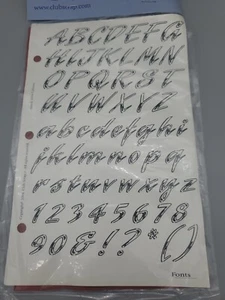 ABCDEFG
HIJKLMN
OPQRST
UVWXYZ
abcdefghi
jklmnopq
rstuvwxyz
12345678
90&!?*()
Fonts